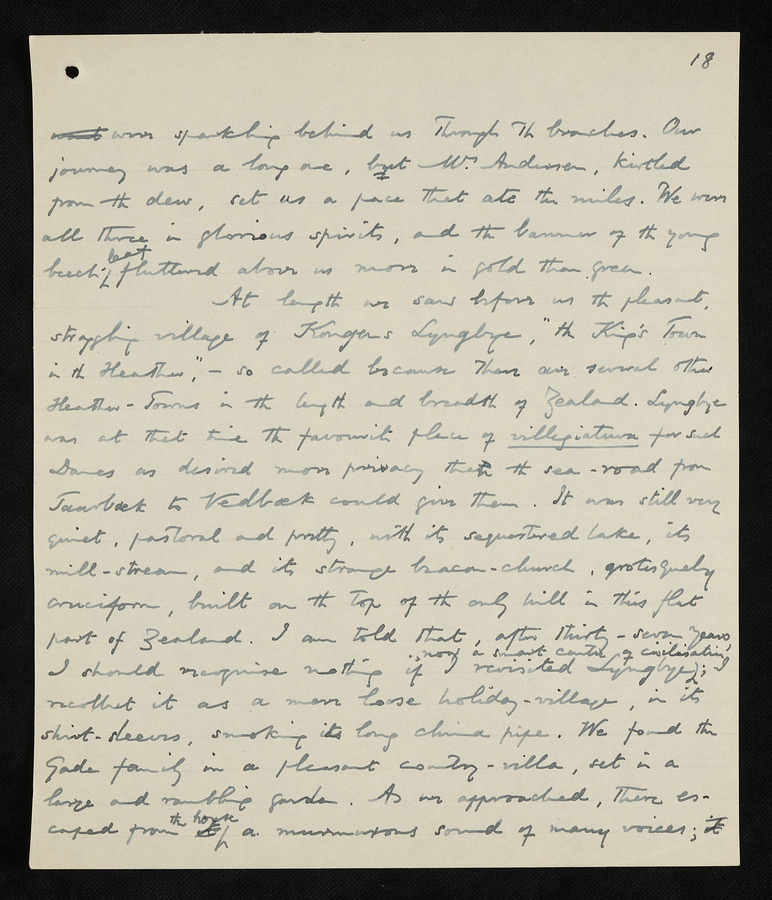 18
were sparkling behind us through the branches. Our
journey was a long one, but Mrs. Andersen, kirtled
from the dew, set us a pace that ate the miles. We were
all three in glorious spirits, and the banner of the young
beech-leaf fluttered above us more in gold than green.
At length we saw before us the pleasant,
straggling village of Kongens Lyngbye, "the King's Town
in the Heather," – so called because there are several other
Heather-Towns in the length and breadth of Zealand. Lyngbye
was at that time the favourite place of villegiatura for such
Danes as desired more privacy than the sea-road from
Taarbæk to Vedbæk could give them. It was still very
quiet, pastoral and pretty, with its sequestered lake, its
mill-stream, and its strange beacon-church, grotesquely
cruciform, built on the top of the only hill in this flat
part of Zealand. I am told that, after thirty-seven years,
I should recognise nothing if I revisited Lyngbye, now a smart centre of civilisation; I
recollect it as a mere loose holiday-village, in its
shirt-sleeves, smoking its long china pipe. We found the
Gade family in a pleasant country-villa, set in a
large and rambling garden. As we approached, there es-
caped from the house a murmurous sound of many voices; it